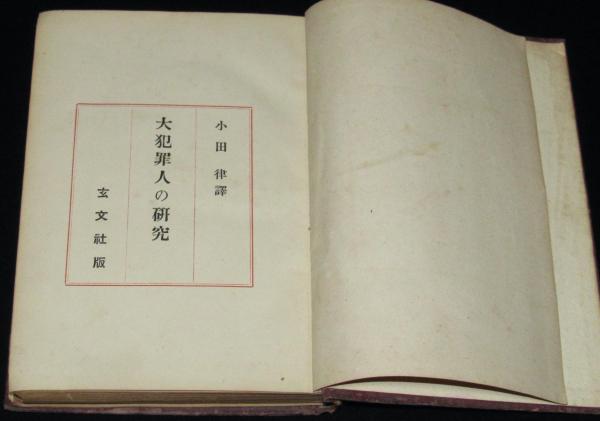 小田律譯
大犯罪人の研究
玄文社版